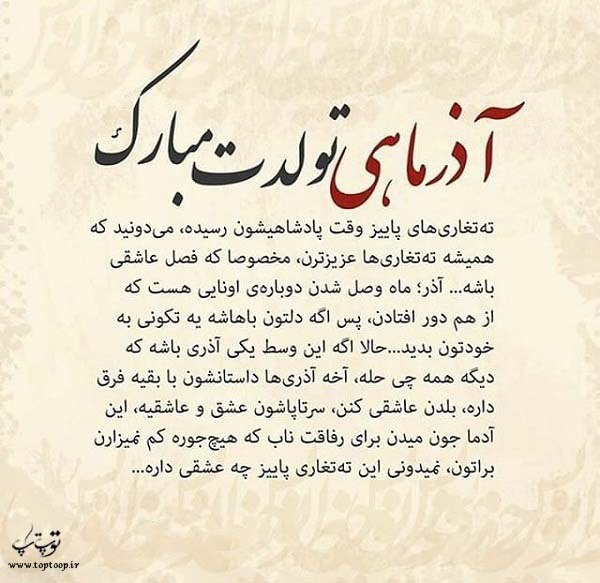 آذرماهی تولدت مبارک
ته‌تغاری‌های پاییز وقت پادشاهیشون رسیده، می‌دونید که
همیشه ته‌تغاری‌ها عزیزترن، مخصوصا که فصل عاشقی
باشه... آذر؛ ماه وصل شدن دوباره‌ی اونایی هست که
از هم دور افتادن، پس اگه دلتون باهاشه یه تکونی به
خودتون بدید...حالا اگه این وسط یکی آذری باشه که
دیگه همه چی حله، آخه آذری‌ها داستانشون با بقیه فرق
داره، بلدن عاشقی کنن، سرتاپاشون عشق و عاشقیه، این
آدما جون میدن برای رفاقت ناب که هیچ‌جوره کم نمیزارن
براتون، نمیدونی این ته‌تغاری پاییز چه عشقی داره...
توپ تاپ
www.toptoop.ir